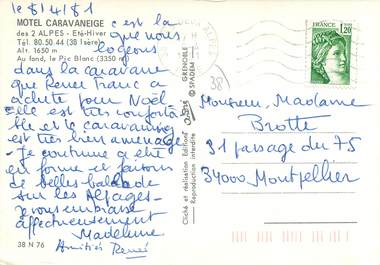 le 8/4/81
MOTEL CARAVANEIGE
des 2 ALPES - Eté-Hiver
Tél. 80.50.44 (38 Isère)
Alt. 1650 m
Au fond, le Pic Blanc (3350 m)
c'est la
que nous
logeons
dans la caravane
que Renée Franc a
acheté pour Noël
elle est très conforta
ble et le caravaning
est très bien aménagé
Je continue à été
en forme et faisons
de belles balade
sur les Alpages
vous embrasse
affectueusement
Madeleine
Amitiés Renée
38 N 76
Cliché et réalisation Editions
Reproduction interdite
GRENOBLE
SPADEM
38
FRANCE
1,20
Monsieur, Madame
Brotte
31 passage du 75
34000 Montpellier